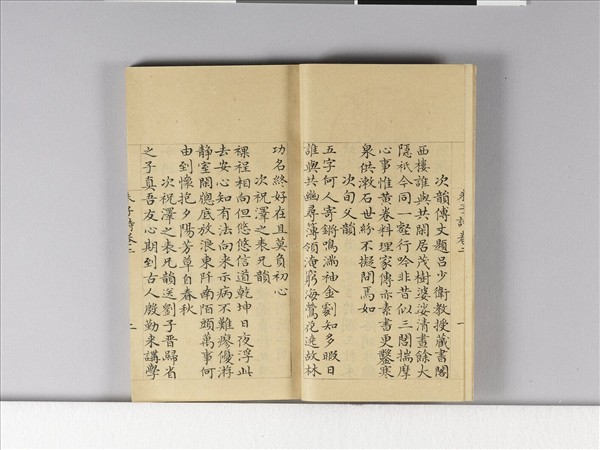 朱子詩卷二
一
次韻傅丈題呂少衛教授藏書閣
西樓誰與共閒居茂樹婆娑清晝餘大
隱祇今同一壑行吟非昔似三閭揣摩
心事惟黃卷料理家傳亦素書更鑿寒
泉供漱石世紛不擬問焉如
次旬父韻
五字何人寄鏘鳴滿袖金劃知多暇日
誰與共幽尋簿領淹窮海鶯花遶故林
功名終好在且莫負初心
次祝澤之表兄韻
裸裎相向但悠悠信道乾坤日夜浮此
去安心知有法向來示病不難瘳優游
靜室閑牕底放浪東阡南陌頭萬事何
由到懷抱夕陽芳草自春秋
次祝澤之表兄韻送劉子晉歸省
之子真吾友心期到古人殷勤來講學
朱子詩卷二
二